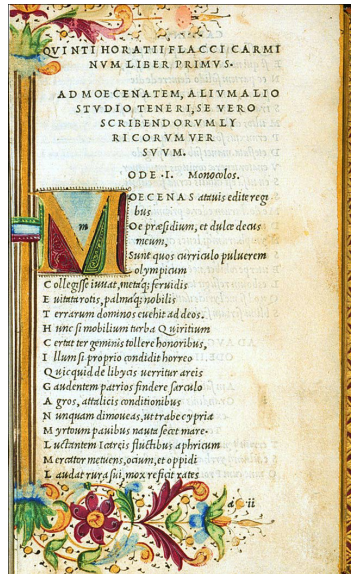 QVINTI HORATII FLACCI CARMI
NVM LIBER PRIMVS.
AD MOECENATEM, ALIVM ALIO
STVDIO TENERI, SE VERO
SCRIBENDORVM LY
RICORVM VER
SVVM.
ODE .I. Monocolos.
MOECENAS atauis edite regi
bus
Oe præsidium, et dulce decus
meum,
Sunt quos curriculo puluerem
olympicum
Collegisse iuuat, metaq; feruidis
Euitata rotis, palmaq; nobilis
Terrarum dominos euehit ad deos.
Hunc si mobilium turba Quiritium
Certat ter geminis tollere honoribus,
Illum si proprio condidit horreo
Quicquid de libycis uerritur areis
Gaudentem patrios findere sarculo
Agros, attalicis conditionibus
Nunquam dimoueas, ut trabe cypria
Myrtoum pauidus nauta secet mare.
Luctantem Icareis fluctibus aphricum
Mercator metuens, ocium, et oppidi
Laudat rura sui, mox reficit rates
a ii